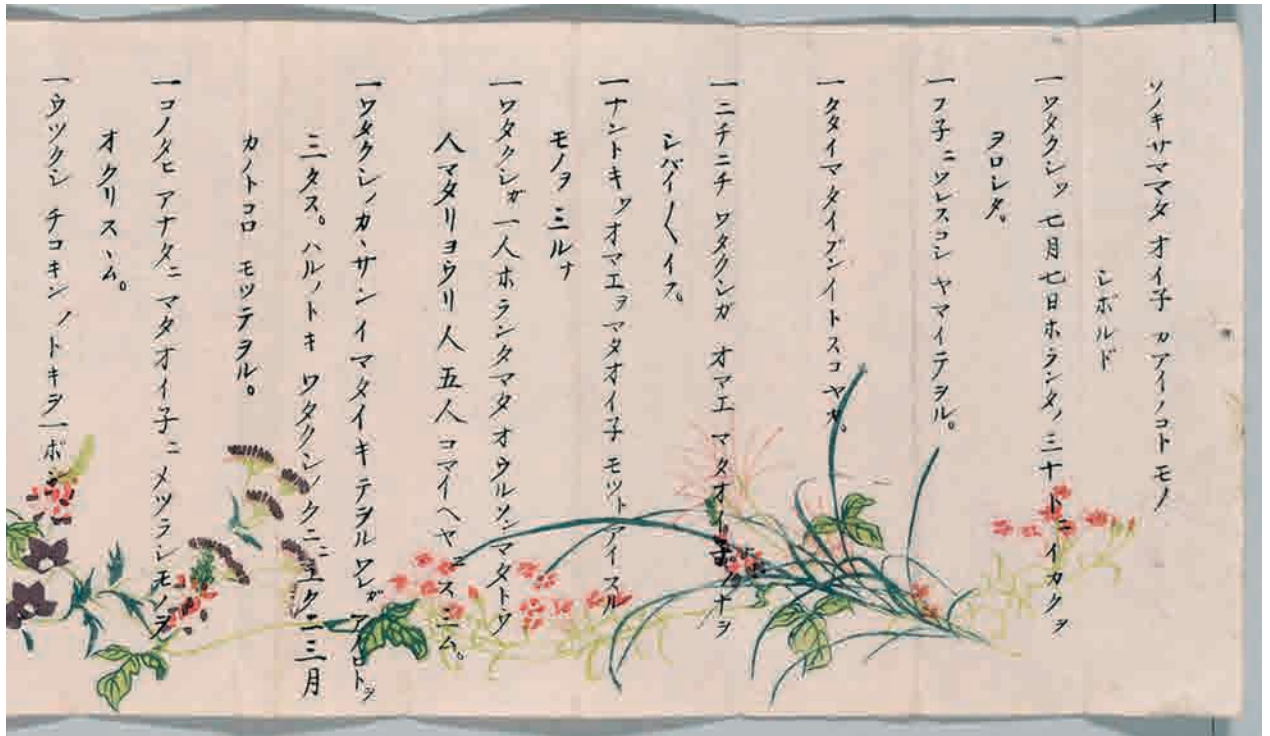 ソノキサママタ オイ子 カアイノコトモノ
シボルド
一ワタクシッ 七月七日ホランタノ 三十ドニイカクヲ
ヲロシタ。
一フ子ニワレスコシ ヤマイテヲル。
一タタイマタイブンイトスコヤカ。
一ニチニチ ワタクシガ オマエ マタオイ子ノナヲ
シバイ〳〵イフ。
一ナントキッオマエヲマタオイ子 モツトアイスル
モノヲ ミルナ
一ワタクシガ一人ホランタマタオウルソンマタトワ
人マタリヨウリ人 五人 コマイヘヤニスニム。
一ワタクシノカヽサンイマタイキテヲルワレガ
ミタス。ハルノトキ ワタクシノクニニユク二三月
カノトコロ モツテヲル。
一コノタヒ アナタニ マタオイ子ニ メツラシモノヲ
オクリスヽム。
一ウツクシ チコキンノトキヲ一ポン